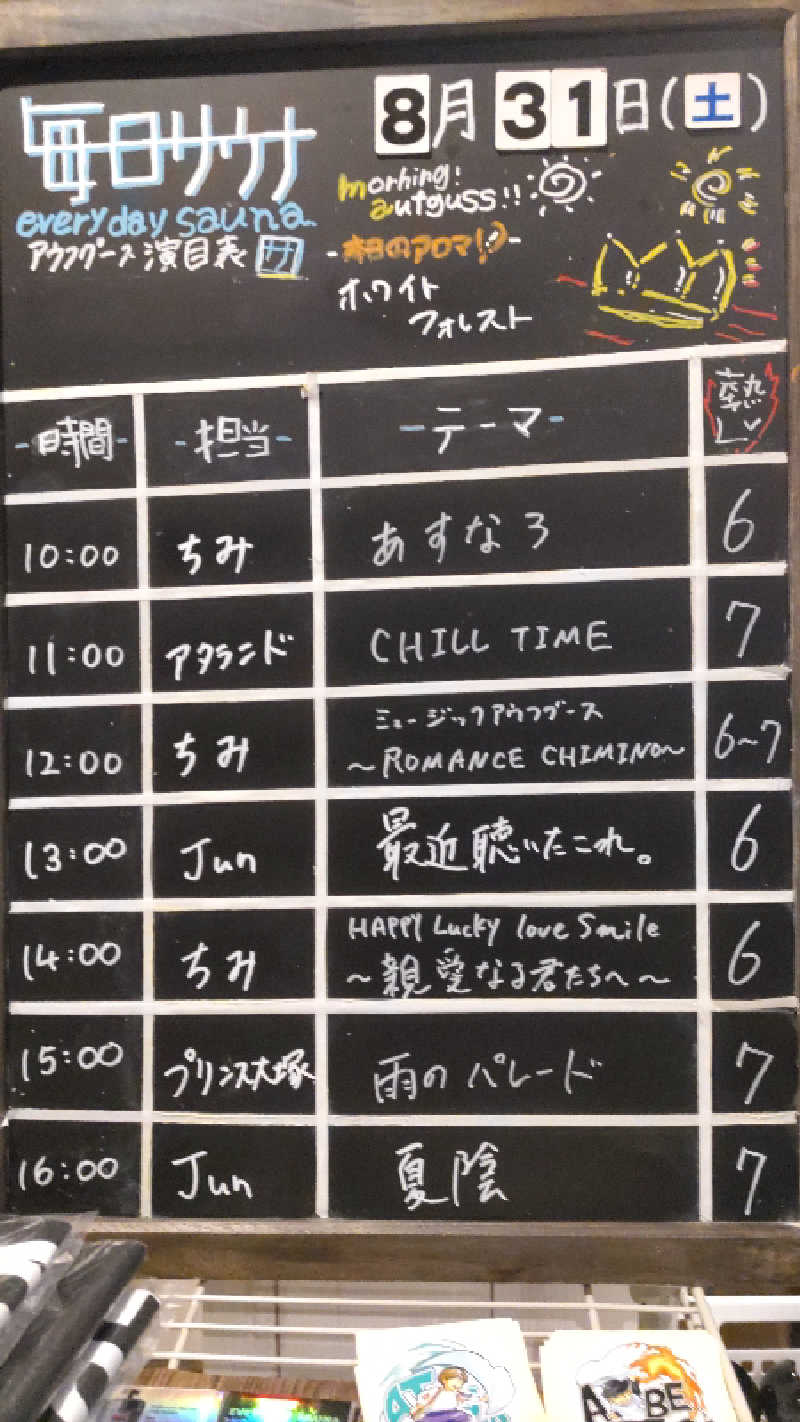 毎日サウナ
everyday sauna
アウフグース演目表 サ
8月31日(土)
morning!
autguss!!
-本日のアロマ!-
ホワイト
フォレスト
-時間- -担当- -テーマ- 熱Lv
10:00 ちみ あすなろ 6
11:00 アタランド CHILL TIME 7
12:00 ちみ ミュージックアウフグース
~ROMANCE CHIMINO~ 6~7
13:00 Jun 最近聴いたこれ。 6
14:00 ちみ HAPPY Lucky love Smile
~親愛なる君たちへ~ 6
15:00 プリンス大塚 雨のパレード 7
16:00 Jun 夏陰 7